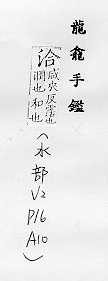 龍龕手鑑
洽
咸夾反霑也
潤也和也
(水部
V2
P16
A10
)